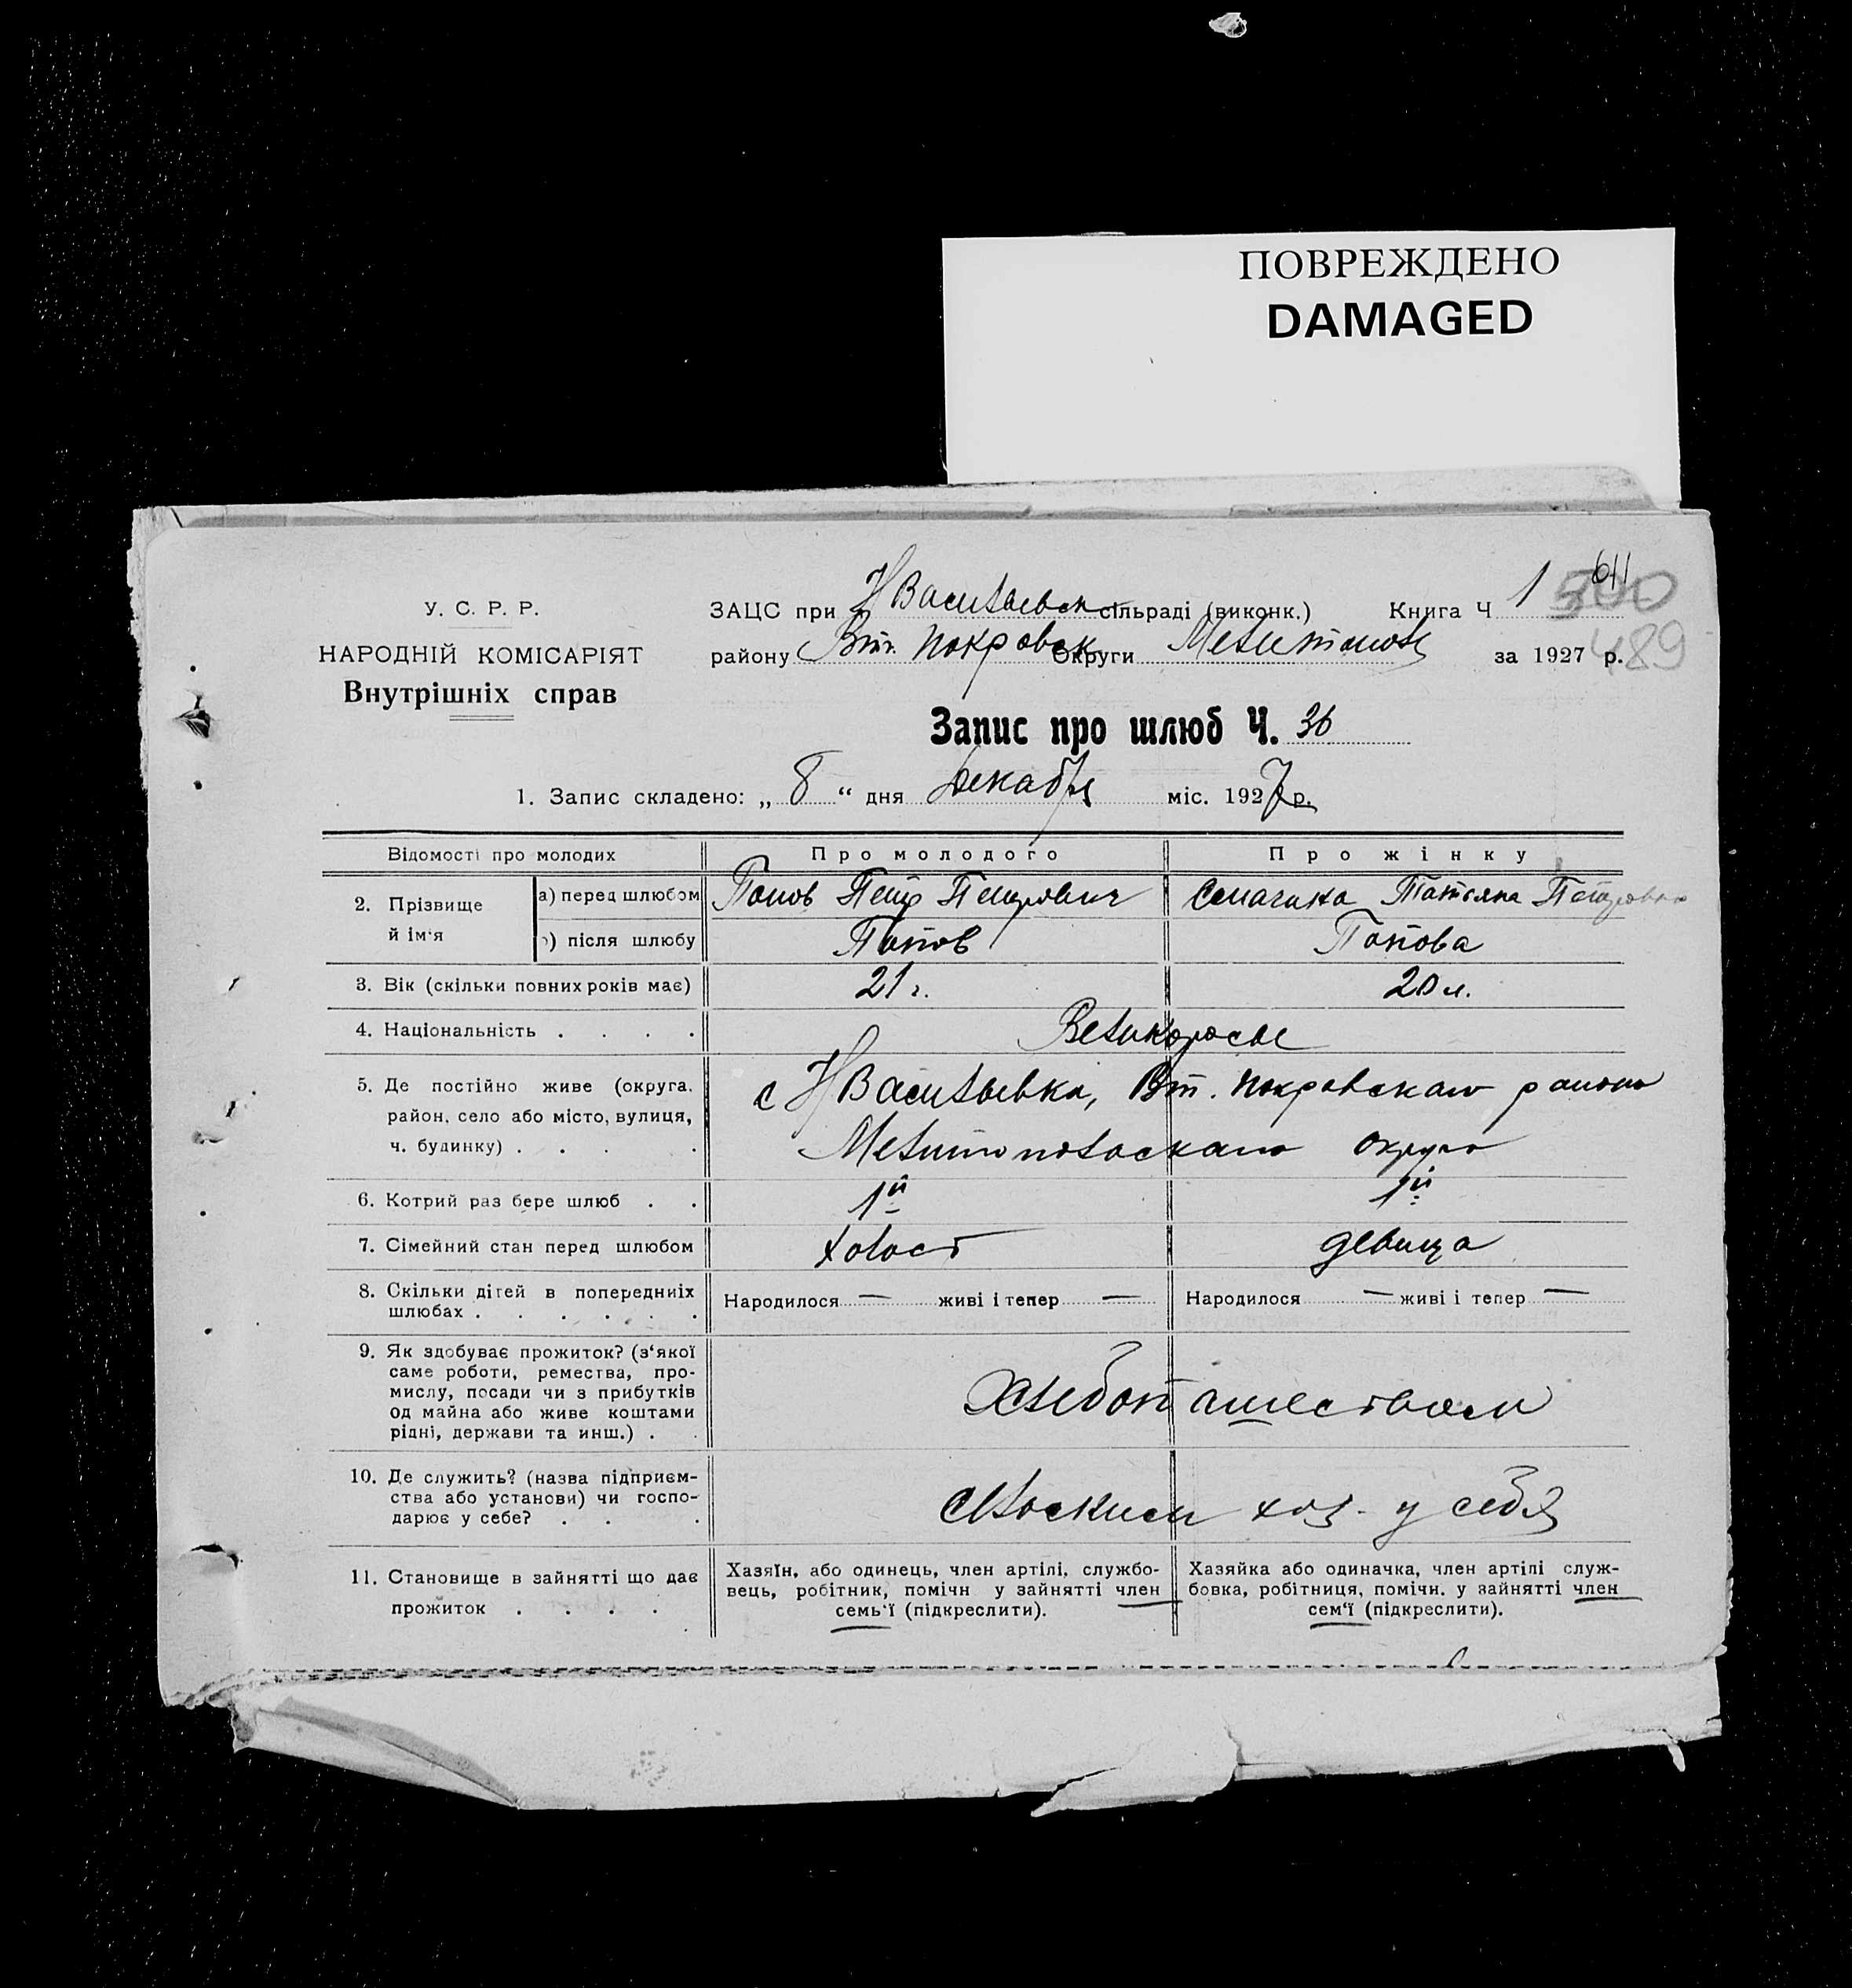 ПОВРЕЖДЕНО
DAMAGED
641
500
489
У. С. Р. Р.
НАРОДНІЙ КОМІСАРІЯТ
Внутрішніх справ
ЗАЦС при Н Васильевск сільраді (виконк.) Книга Ч 1
району Вт. Покровск Округи Мелитопол за 1927 р.
Запис про шлюб Ч. 36
1. Запис складено: „ 8 “ дня Декабря міс. 1927 р.
Відомості про молодих Про молодого Про жінку
2. Прізвище й ім‘я
а) перед шлюбом Попов Петр Петрович Татьяна Петровна
б) після шлюбу Попов Попова
3. Вік (скільки повних років має) 21 г. 20 л.
4. Національність . . . . Великоросы
5. Де постійно живе (округа, с Н Васильевка, Вт. Покровскаго района
район, село або місто, вулиця,
ч. будинку) . . . . Мелитопольскаго округа
6. Котрий раз бере шлюб . . 1й 1й
7. Сімейний стан перед шлюбом холост девица
8. Скільки дітей в попередниіх Народилося — живі і тепер — Народилося — живі і тепер —
шлюбах . . . . . .
9. Як здобуває прожиток? (з‘якої
саме роботи, ремества, про-
мислу, посади чи з прибутків Хлебопашеством
од майна або живе коштами
рідні, держави та инш.) . .
10. Де служить? (назва підприєм-
ства або установи) чи госпо- сельским хоз. у себя
дарює у себе? . . .
11. Становище в зайнятті що дає
прожиток . . . .
Хазяїн, або одинець, член артілі, службо-
вець, робітник, помічн у зайнятті член
семь‘ї (підкреслити).
Хазяйка або одиначка, член артілі служ-
бовка, робітниця, помічн. у зайнятті член
сем‘ї (підкреслити).